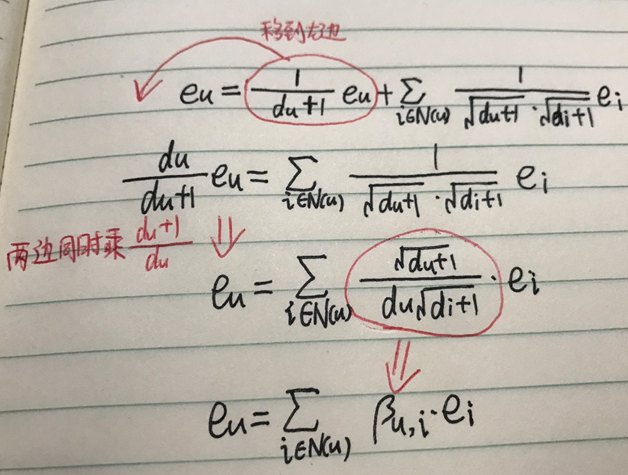 移到左边
e_u = \frac{1}{d_u+1} e_u + \sum_{i∈N(u)} \frac{1}{\sqrt{d_u+1}·\sqrt{d_i+1}} e_i
\frac{d_u}{d_u+1} e_u = \sum_{i∈N(u)} \frac{1}{\sqrt{d_u+1}·\sqrt{d_i+1}} e_i
两边同时乘 \frac{d_u+1}{d_u} ⇓
e_u = \sum_{i∈N(u)} \frac{\sqrt{d_u+1}}{d_u\sqrt{d_i+1}}·e_i
⇓
e_u = \sum_{i∈N(u)} β_{u,i}·e_i